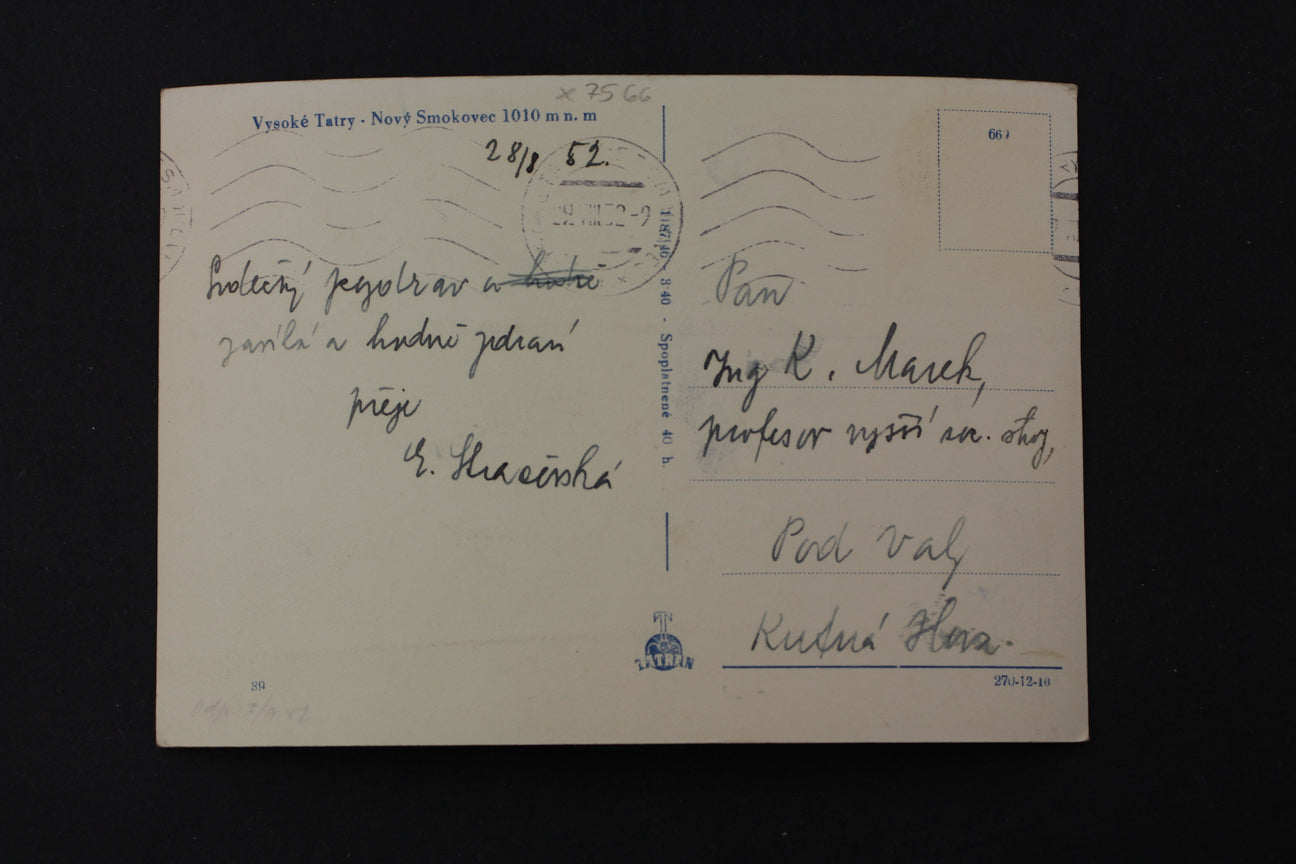 x 7566
Vysoké Tatry - Nový Smokovec 1010 m n. m
28/8 52.
29.VIII.52-9
Srdečný pozdrav a
zasílá a hodně zdraví
přeje
1187/46 - 3·40 - Spoplatnené 40 h.
TATRAN
39
66
Pan
Ing K. Marek,
profesor vyšší
Pod Valy
Kutná Hora.
270-12-10